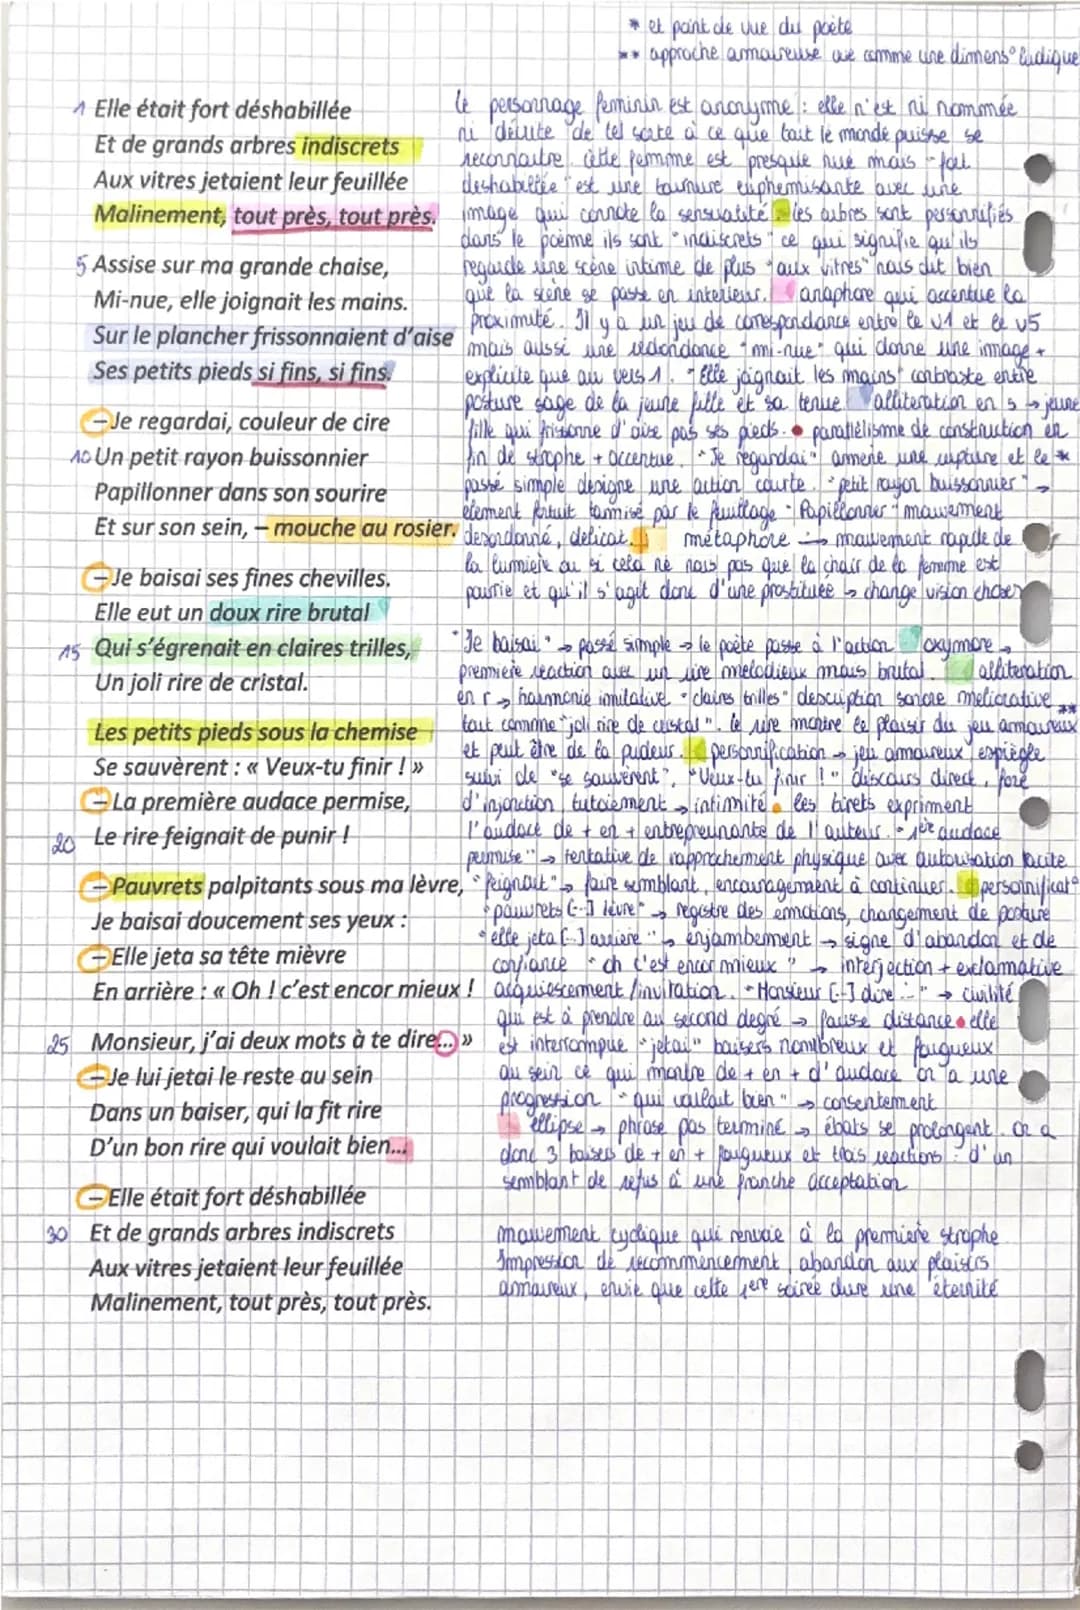 * et point de vue du poète
** approche amoureuse vue comme une dimens° ludique
1 Elle était fort déshabillée
Et de grands arbres indiscrets
Aux vitres jetaient leur feuillée
Malinement, tout près, tout près.
5 Assise sur ma grande chaise,
Mi-nue, elle joignait les mains.
Sur le plancher frissonnaient d'aise
Ses petits pieds si fins, si fins.
– Je regardai, couleur de cire
10 Un petit rayon buissonnier
Papillonner dans son sourire
Et sur son sein, – mouche au rosier.
– Je baisai ses fines chevilles.
Elle eut un doux rire brutal
15 Qui s'égrenait en claires trilles,
Un joli rire de cristal.
Les petits pieds sous la chemise
Se sauvèrent : « Veux-tu finir ! »
– La première audace permise,
20 Le rire feignait de punir !
– Pauvrets palpitants sous ma lèvre,
Je baisai doucement ses yeux :
– Elle jeta sa tête mièvre
En arrière : « Oh ! c'est encor mieux !
25 Monsieur, j'ai deux mots à te dire... »
– Je lui jetai le reste au sein
Dans un baiser, qui la fit rire
D'un bon rire qui voulait bien...
– Elle était fort déshabillée
30 Et de grands arbres indiscrets
Aux vitres jetaient leur feuillée
Malinement, tout près, tout près.
Le personnage feminin est anonyme : elle n'est ni nommée
ni décrite de tel sorte à ce que tout le monde puisse se
reconnaitre. cette femme est presque nue mais "fort
deshabillée" est une tournure euphemisante avec une
image qui connote la sensualité. les arbres sont personnifiés
dans le poème ils sont "indiscrets" ce qui signifie qu'ils
regarde une scène intime de plus "aux vitres" nous dit bien
que la scène se passe en interieur. anaphore qui accentue la
proximité. Il y a un jeu de correspondance entre le v1 et le v5
mais aussi une redondance "mi-nue" qui donne une image +
explicite que au vers 1. "Elle joignait les mains" contraste entre
posture sage de la jeune fille et sa tenue alliteration en s → jeune
fille qui frissonne d'aise pas ses pieds. parallélisme de construction en
fin de strophe + accentue. "Je regardai" amène une rupture et le *
passé simple designe une action courte. "petit rayon buissonnier" →
element fortuit tamisé par le feuillage "Papillonner" mouvement
desordonné, delicat. métaphore → mouvement rapide de
la lumière ou si cela ne nous pas que la chair de la femme est
pourrie et qu'il s'agit donc d'une prostituée → change vision chose
"Je baisai" → passé simple → le poète passe à l'action oxymore →
premiere reaction avec un rire melodieux mais brutal. alliteration
en r → harmonie imitative "claires trilles" description sonore meliorative
tout comme "joli rire de cristal". le rire montre le plaisir du jeu amoureux **
et peut être de la pudeur. personnification → jeu amoureux espiègle
suivi de "se sauvèrent". "Veux-tu finir !" discours direct,
d'injonction, tutoiement → intimité. les tirets expriment
l'audace de + en + entrepreunante de l'auteur. "1ère audace
permise" → tentative de rapprochement physique avec autorisation tacite
"feignait" → faire semblant, encouragement à continuer. personnificat°
"pauvrets [...] lèvre" → registre des emotions, changement de posture
"elle jeta [...] arrière" → enjambement → signe d'abandon et de
confiance "oh c'est encor mieux" → interjection + exclamative
acquiescement/invitation. "Monsieur [...] dire..." → civilité
qui est à prendre au second degré → fausse distance. elle
est interrompue "jetai" baisers nombreux et fougueux
au sein ce qui montre de + en + d'audace on a une
progression "qui voulait bien" → consentement
ellipse → phrase pas terminé → ébats se prolongent. On a
donc 3 baisers de + en + fougueux et trois reactions : d'un
semblant de refus à une franche acceptation
mouvement cyclique qui renvoie à la premiere strophe
Impression de recommencement, abandon aux plaisirs
amoureux, envie que cette 1ere soirée dure une éternité